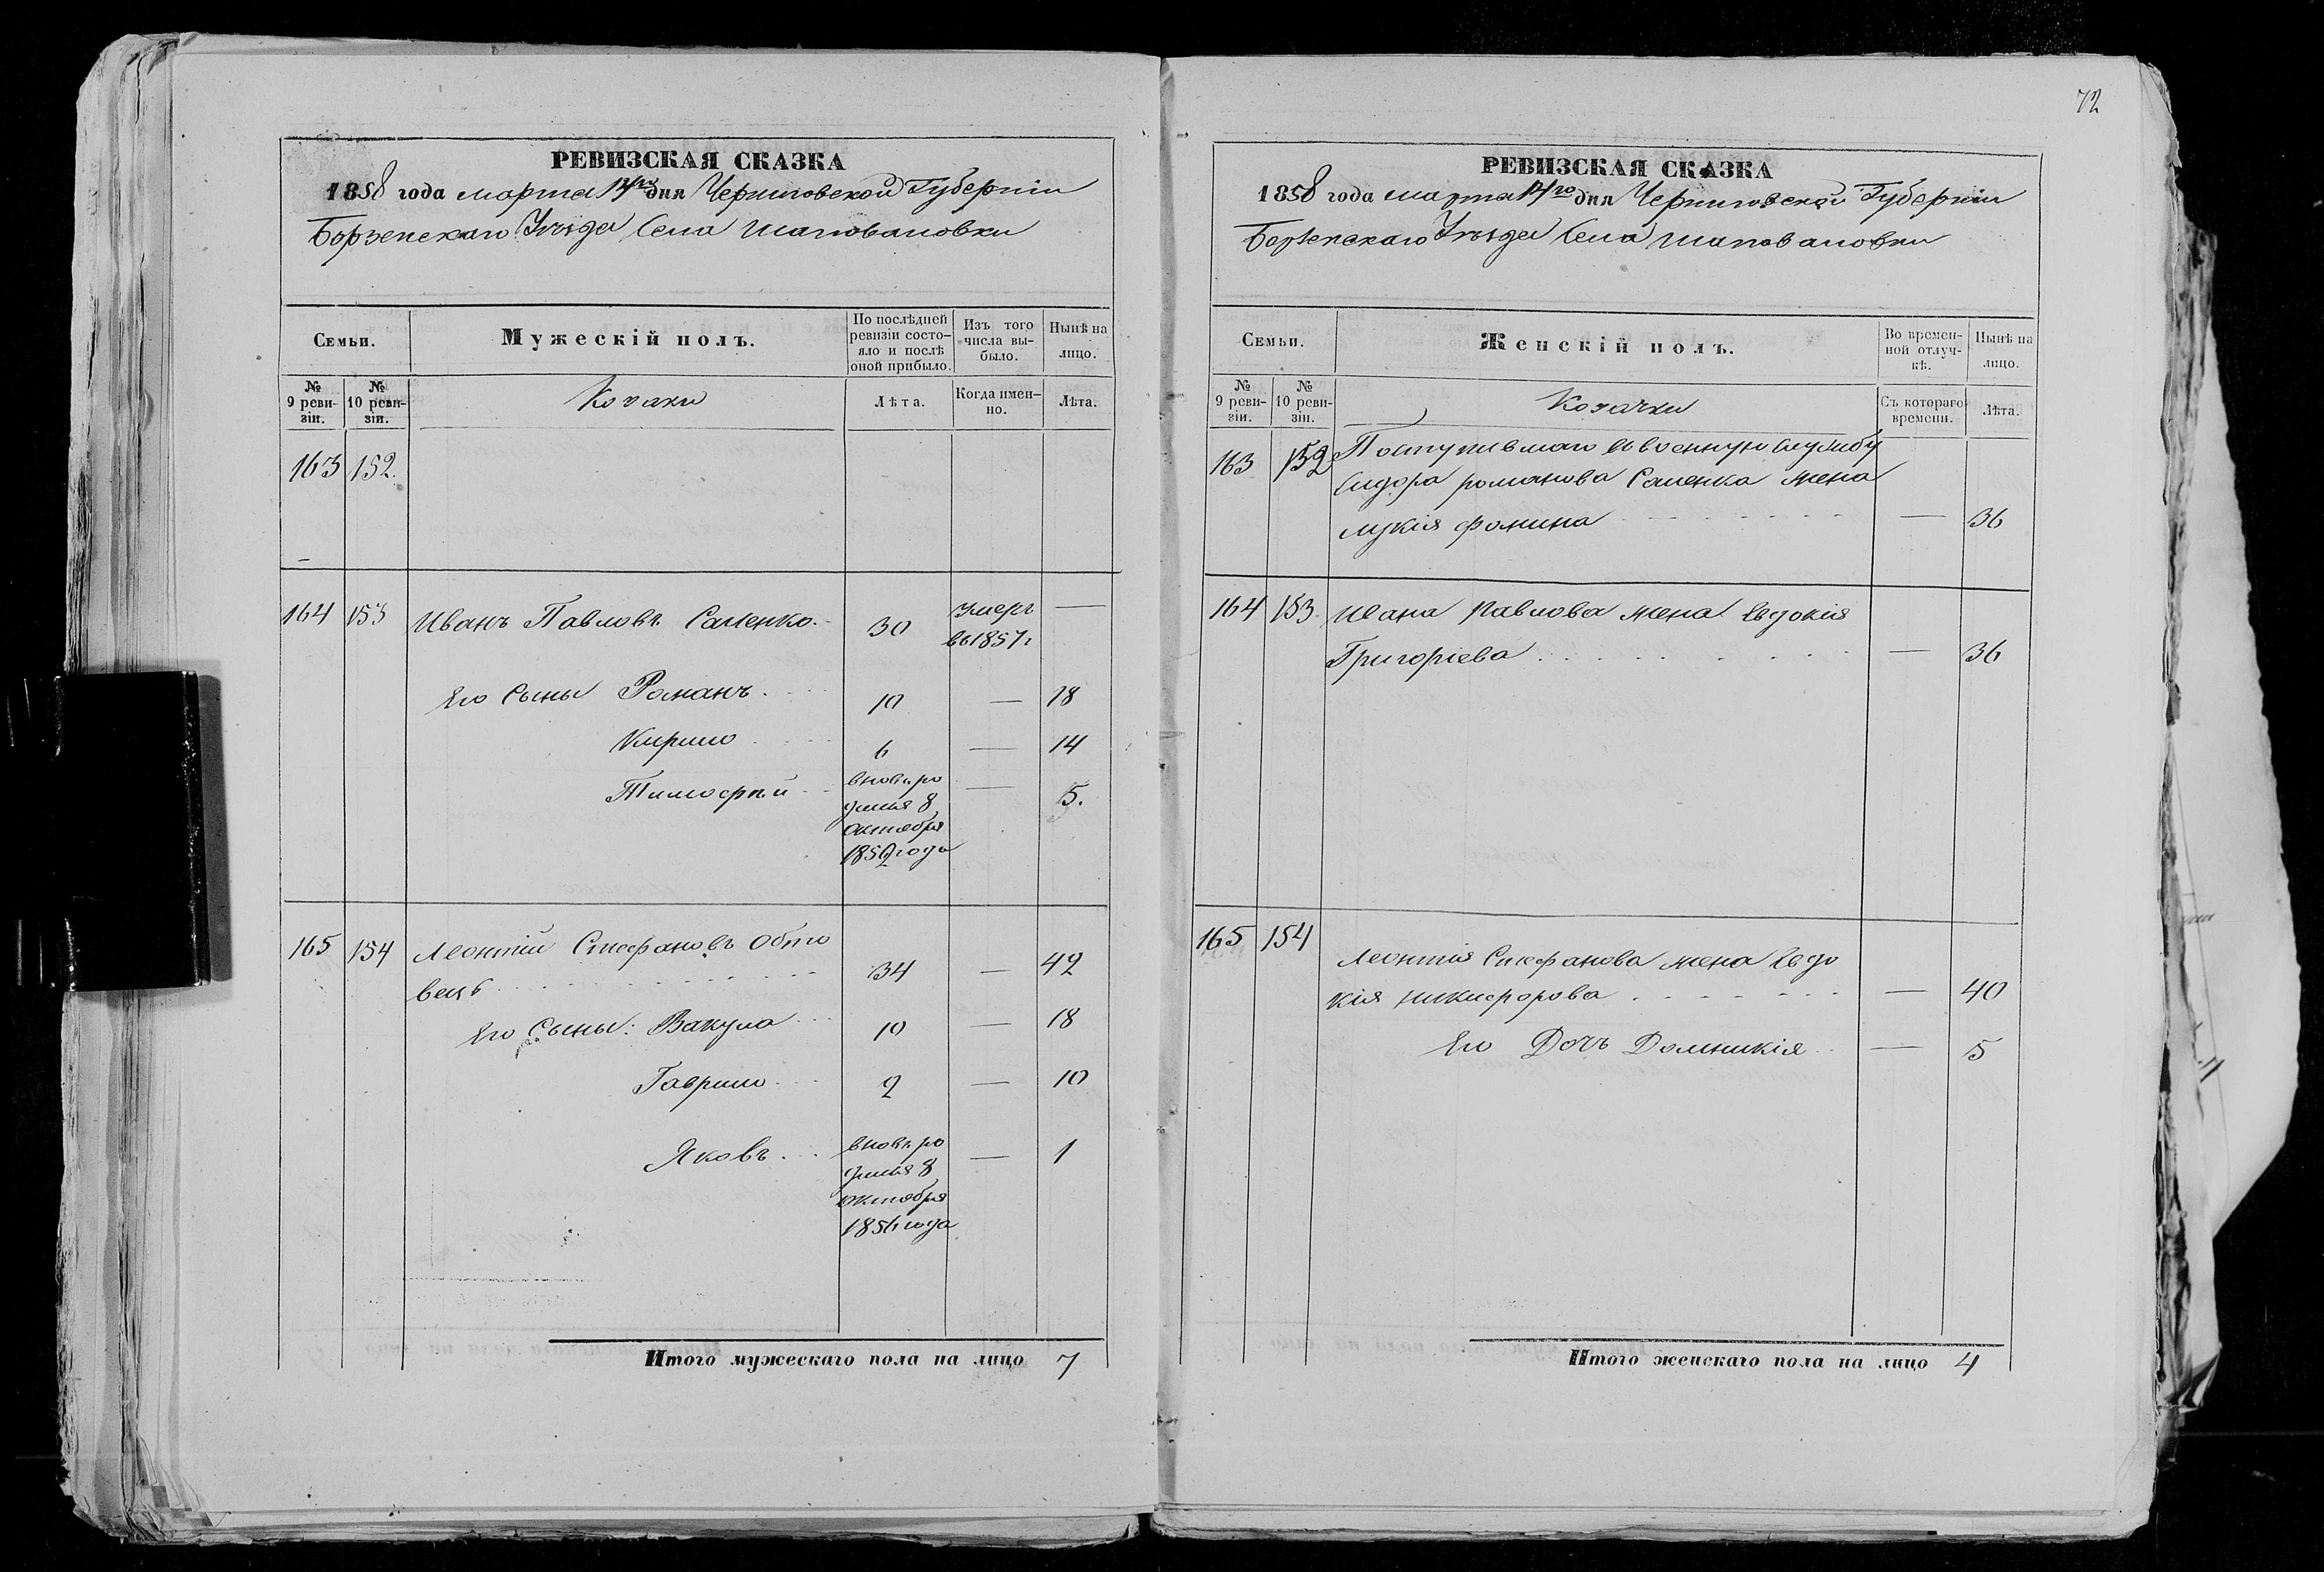 РЕВИЗСКАЯ СКАЗКА
1858 года марта 14го дня Черниговской Губерніи
Борзенскаго Уѣзда Села Шаповаловки
Семьи.
Мужескій полъ.
По послѣдней ревизіи состояло и послѣ оной прибыло.
Изъ того числа выбыло.
Нынѣ на лицо.
№ 9 ревизіи.
№ 10 ревизіи.
Козаки
Лѣта.
Когда именно.
Лѣта.
163 152.
164 153 Иванъ Павловъ Саленко. 30 умеръ въ 1857 г —
Его Сыны Романъ. 10 — 18
Кирило 6 — 14
Тимофѣй вновь ро — 5.
дился 8
октября
1852 года
165 154 Леонтій Стефановъ Обто
вецъ 34 — 42
Его Сыны: Вакула 10 — 18
Гаврило 2 — 10
Яковъ вновь ро — 1
дился 8
октября
1856 года
Итого мужескаго пола на лицо 7
72
РЕВИЗСКАЯ СКАЗКА
1858 года марта 14го дня Черниговской Губерніи
Борзенскаго Уѣзда Села Шаповаловки
Семьи.
Женскій полъ.
Во временной отлучкѣ.
Нынѣ на лицо.
№ 9 ревизіи.
№ 10 ревизіи.
Козачки
Съ котораго времени.
Лѣта.
163 152 Поступившаго въ военную службу
Сидора романова Саленка жена
лукія фомина — 36
164 153. Ивана Павлова жена Евдокія
Григоріева — 36
165 154 Леонтія Стефанова жена Евдо
кія никифорова — 40
Его Дочъ Домникія — 5
Итого женскаго пола на лицо 4